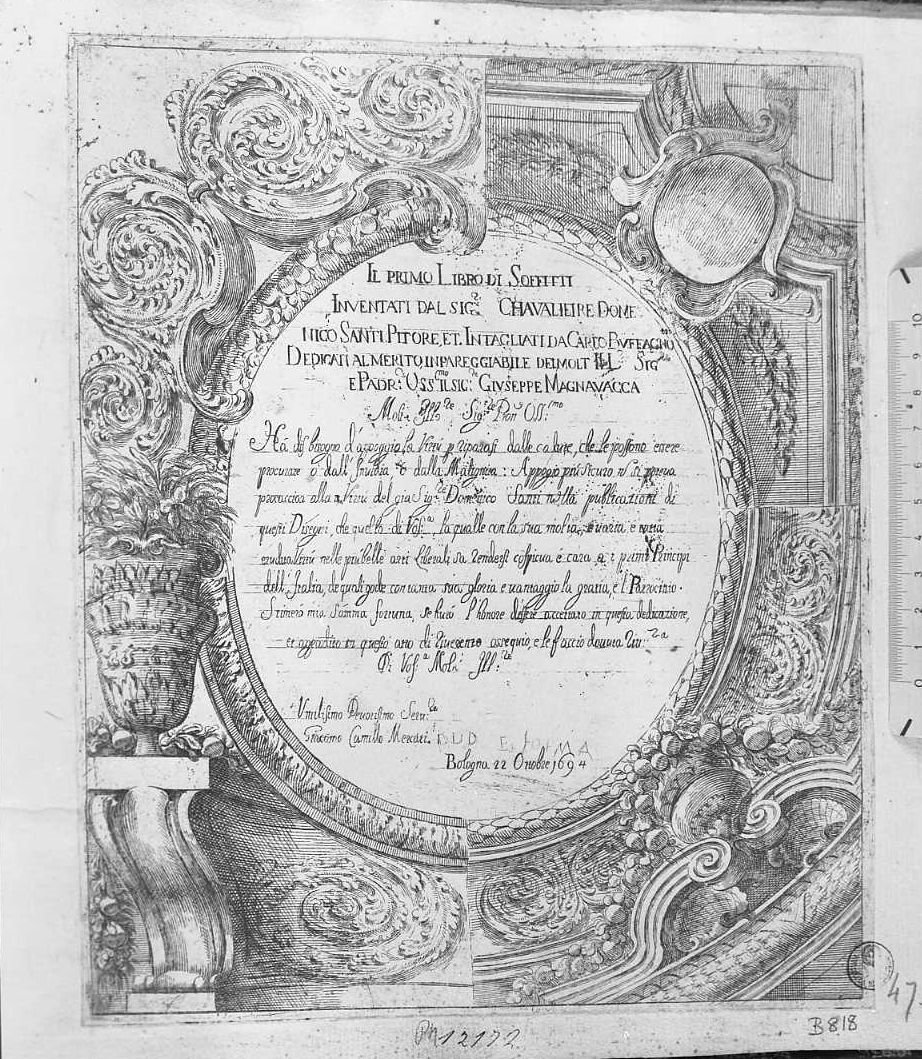 IL PRIMO LIBRO DI SOFFITTI
INVENTATI DAL SIG.R CHAVALIERE DOME
NICO SANTI PITORE, ET. INTAGLIATI DA CARLO BUFFAGNO
DEDICATI AL MERITO INPAREGGIABILE DEL MOLT ILL SIG
E PADR: OSS.mo IL SIG: GIUSEPPE MAGNAVACCA
Molt Ill.re Sig.re Pron Oss.mo
Hà bisogno d'apoggio la Virtù p riparasi dalle cadute, che le possono essere
procurate ò dall'Invidia ò dalla Malignità: Appogio più sicuro
procaccia alla Virtù del già Sig.re Domenico Santi nella publicazione di
questi Disegni, che quello di Vos.a la qualle con la sua molta, e varia e
erudita Virtù nelle più belle arti Liberali sa rendersi cospicua e cara a i primi Principi
dell'Italia, de quali gode con tanta sua gloria e vantaggio la gratia, e'l Patrocinio.
Stimerò mia somma fortuna, se havrò l'honore d'essere accettato in questa dedicatione,
et aggradito in questo atto di riverente ossequio, e le faccio
Di Vos.a Molt Ill.re
Umilissimo Devotissimo Serv.re
Giacomo Camillo Mercati.
Bologna 22 Ottobre 1694
PN 12122
B 818
47
0
10